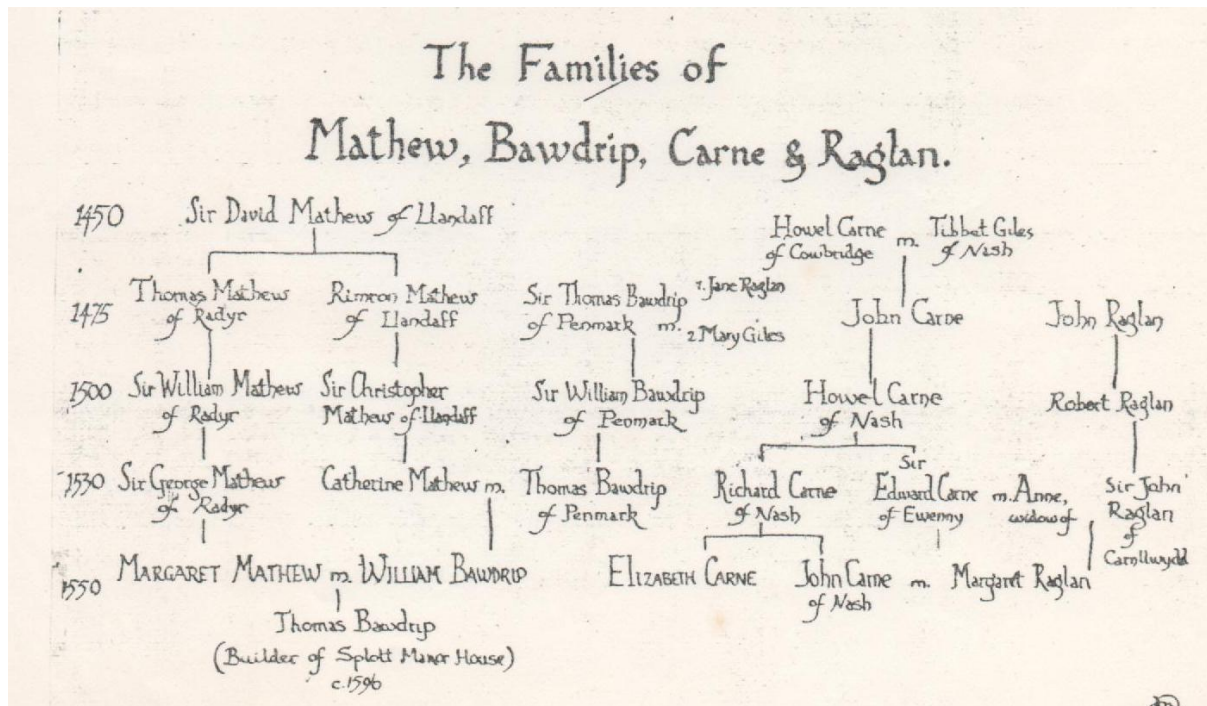 The Families of
Mathew, Bawdrip, Carne & Raglan.
1450 Sir David Mathew of Llandaff
Howel Carne of Cowbridge m. Tibbet Giles of Nash
1475 Thomas Mathew of Radyr
Rimron Mathew of Llandaff
Sir Thomas Bawdrip of Penmark m. 1. Jane Raglan
2 Mary Giles
John Carne
John Raglan
1500 Sir William Mathew of Radyr
Sir Christopher Mathew of Llandaff
Sir William Bawdrip of Penmark
Howel Carne of Nash
Robert Raglan
1530 Sir George Mathew of Radyr
Catherine Mathew m. Thomas Bawdrip of Penmark
Richard Carne of Nash
Sir Edward Carne of Ewenny m. Anne, widow of
Sir John Raglan of Carnllwydd
1550 MARGARET MATHEW m. WILLIAM BAWDRIP
ELIZABETH CARNE
John Carne of Nash m. Margaret Raglan
Thomas Bawdrip
(Builder of Splott Manor House)
c.1596